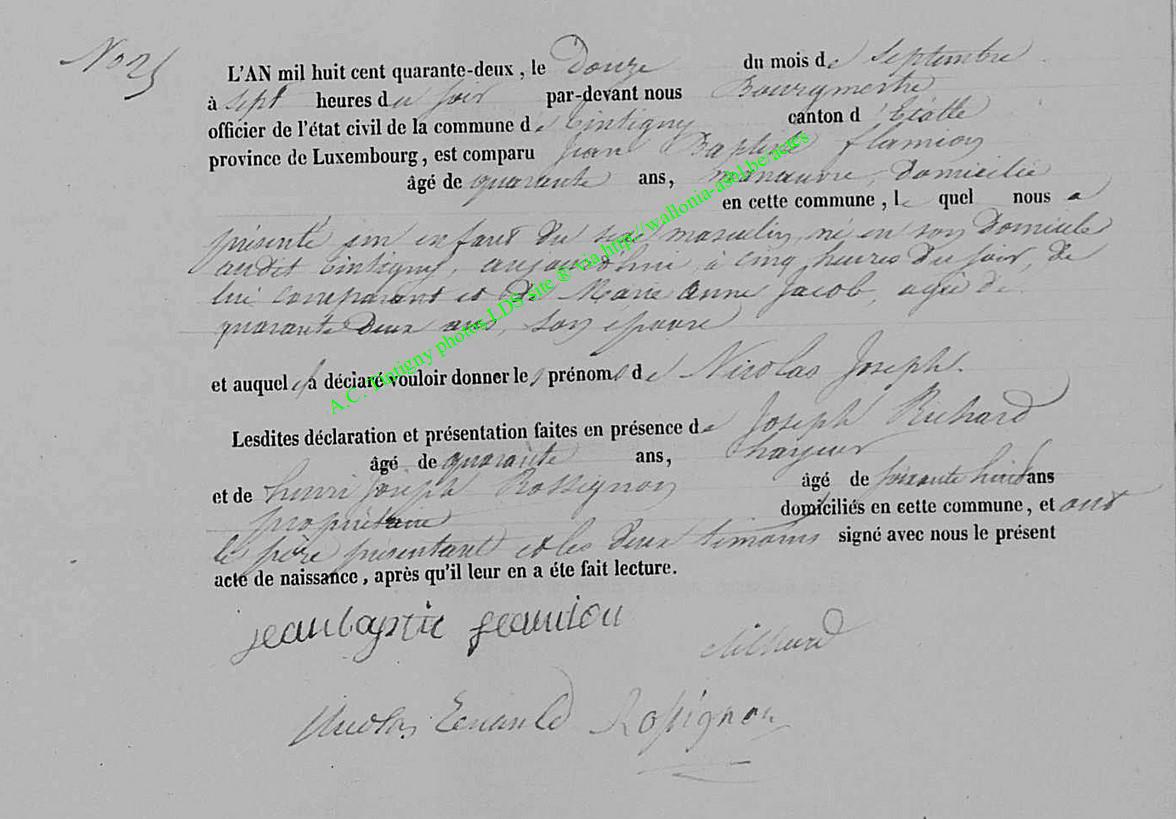 No 25
L'AN mil huit cent quarante-deux, le Douze du mois de Septembre
à sept heures du soir par-devant nous Bourgmestre
officier de l'état civil de la commune de Tintigny canton d'Etalle
province de Luxembourg, est comparu Jean Baptiste flamion
âgé de quarante ans, manœuvre, domicilié
en cette commune, le quel nous a
présenté un enfant du sexe masculin, né en son domicile
audit Tintigny, aujourd'hui, à cinq heures du soir de
lui comparant et de Marie Anne Jacob, agée de
quarante deux ans, son épouse
et auquel il a déclaré vouloir donner les prénoms de Nicolas Joseph.
Lesdites déclaration et présentation faites en présence de Joseph Richard
âgé de quarante ans,
et de henri Joseph Rossignon âgé de soixante huit ans
propriétaire domiciliés en cette commune, et ont
le père présentant et les deux témoins signé avec nous le présent
acte de naissance, après qu'il leur en a éte fait lecture.
jean baptiste
Nicolas Rossignon
A.C. Tintigny photos LDS site ® via http://wallonia-asbl.be actes